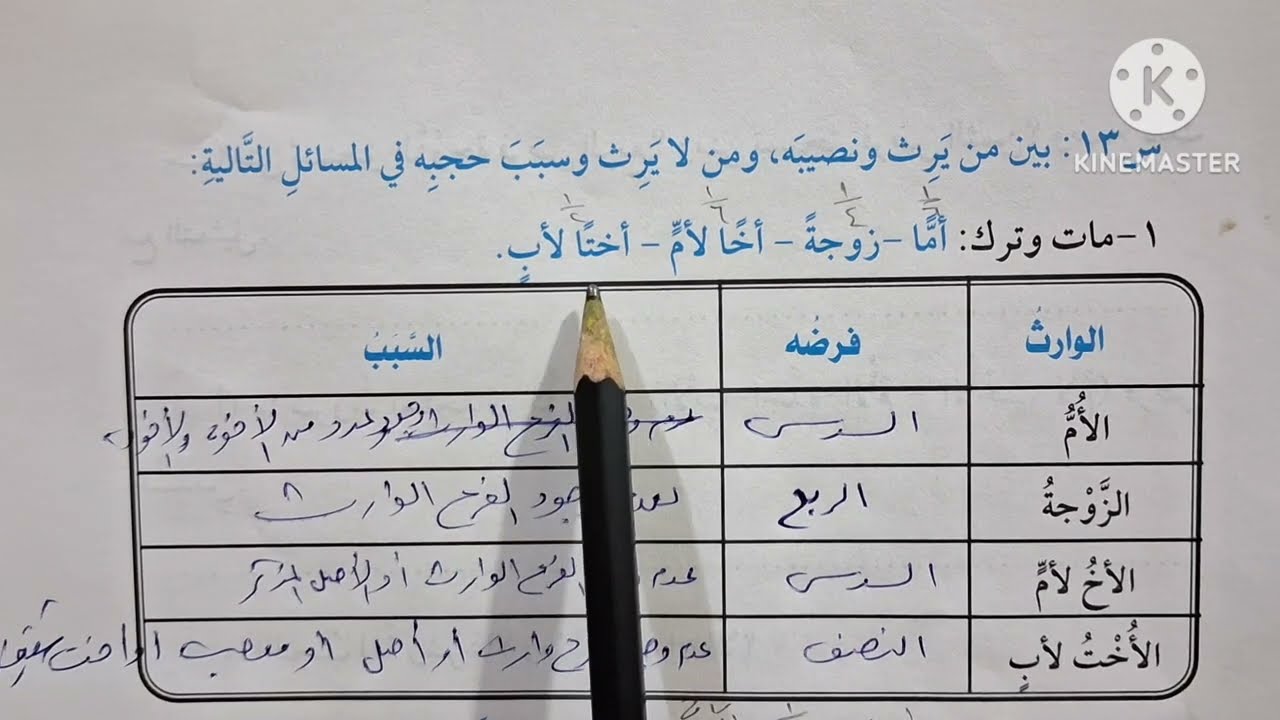 K
KINEMASTER
س١٣: بين من يَرِث ونصيبَه، ومن لا يَرِث وسبَبَ حجبِه في المسائلِ التَّاليةِ:
١/٦ ١/٤ ١/٦ ١/٢
١- مات وترك: أمًّا – زوجةً – أخًا لأمٍّ – أختًا لأبٍ.
الوارثُ فرضُه السَّبَبُ
الأُمُّ السدس عدم الفرع الوارث وجود عدد من الأخوة والأخوات
الزَّوْجةُ الربع لعدم وجود الفرع الوارث
الأخُ لأمٍّ السدس عدم الفرع الوارث أو الأصل المذكر
الأُخْتُ لأبٍ النصف عدم وارث أو أصل أو معصب أو أخت شقيقة